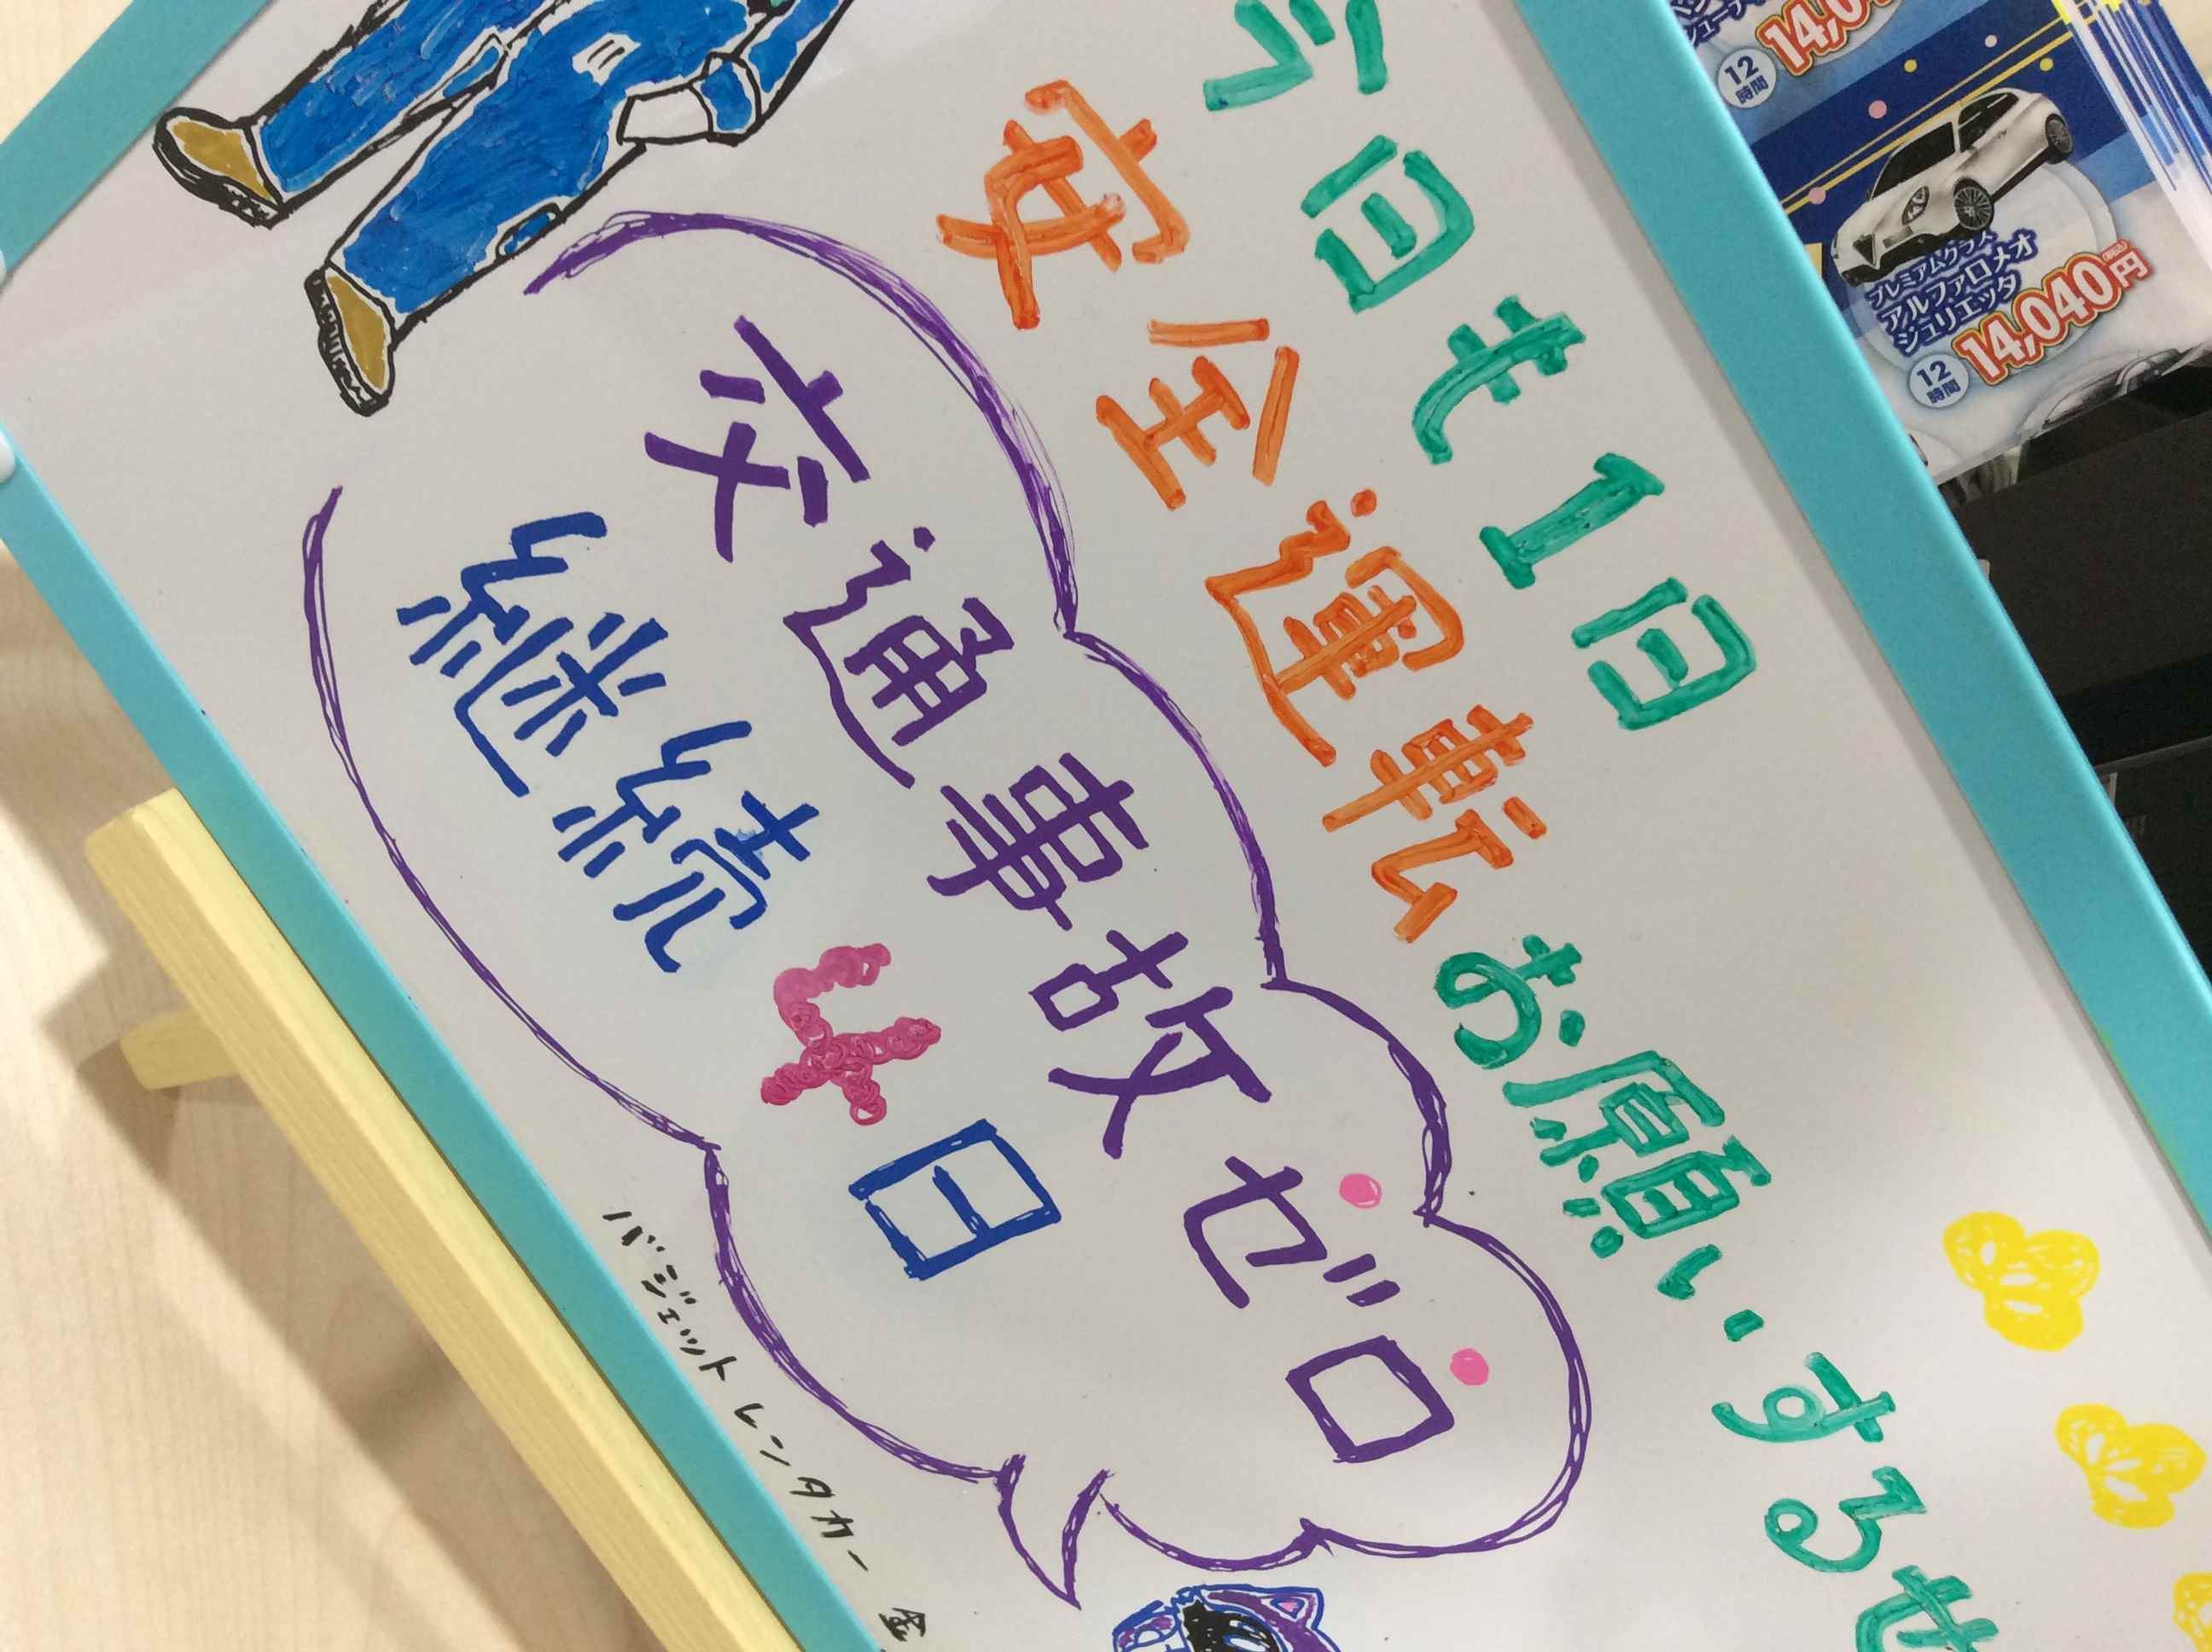 今日も1日
安全運転お願いするぜ
交通事故ゼロ
継続4日
バジェットレンタカー 金
14,0
12時間
プレミアムクラス
アルファロメオ
ジュリエッタ
12時間 14,040円(税込)